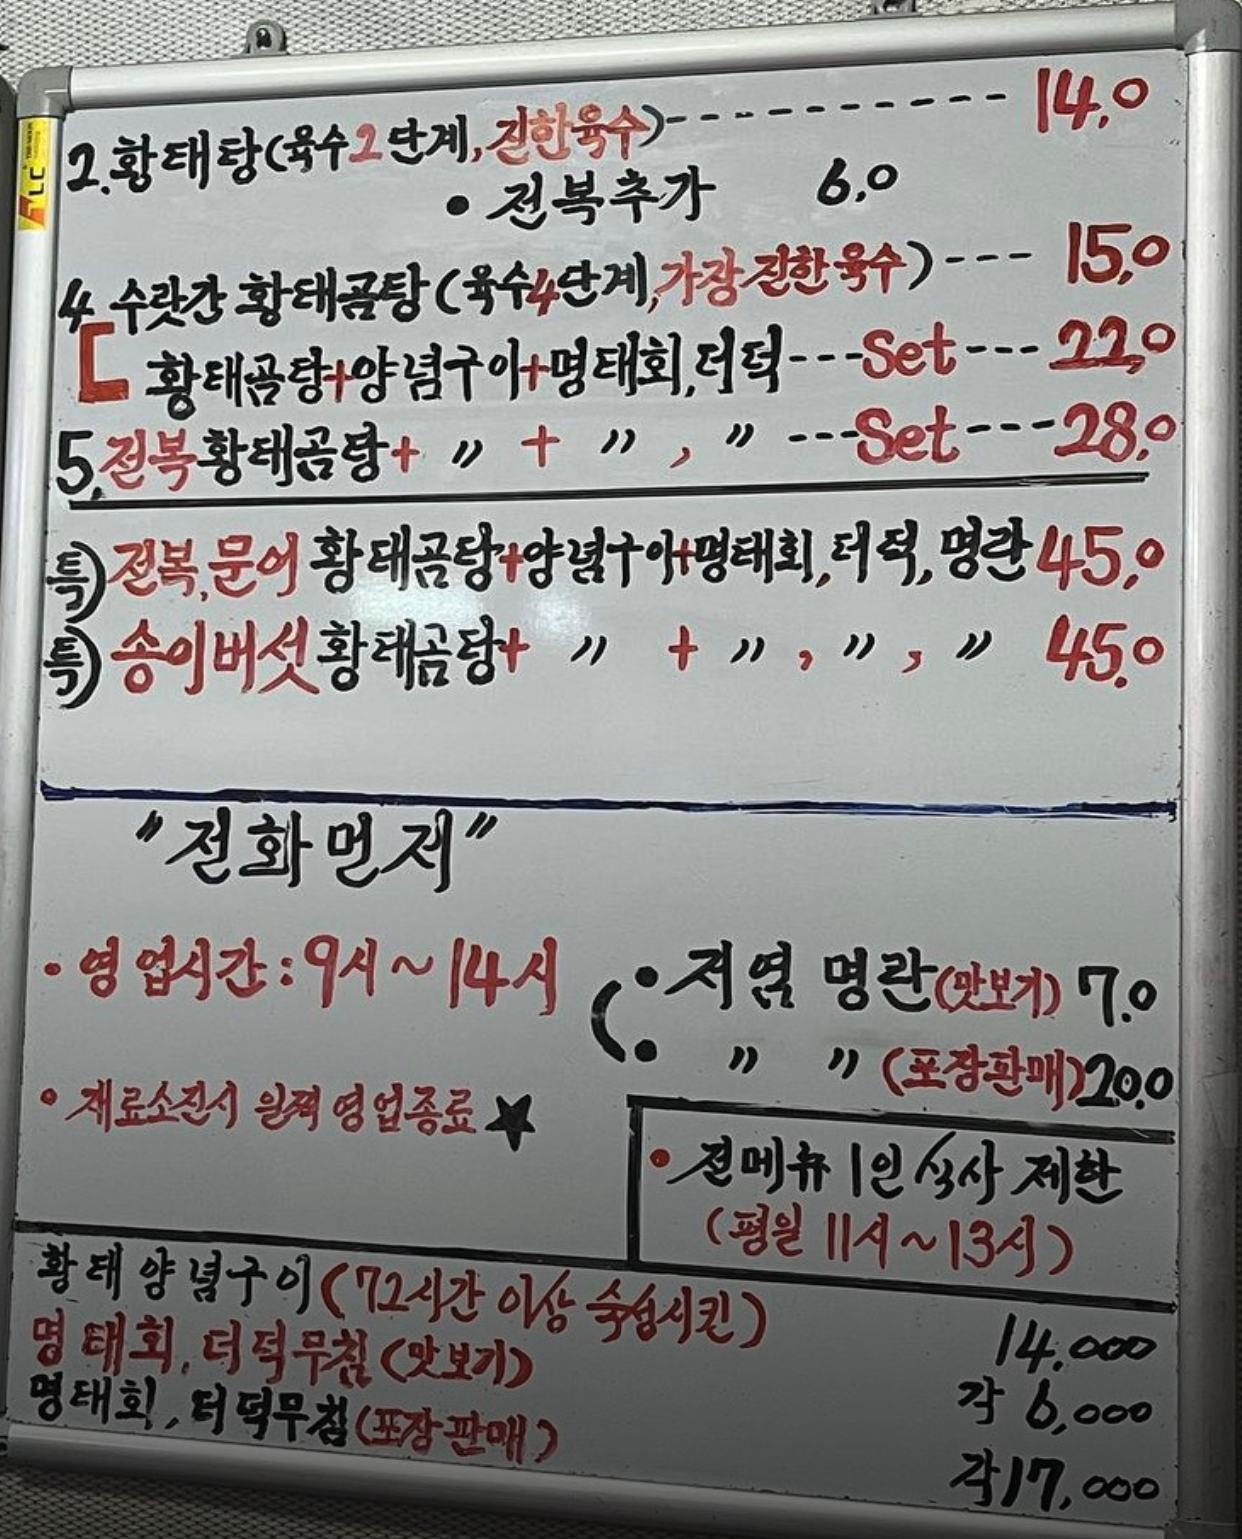 2. 황태탕(육수2단계, 진한육수)---------- 14,0
• 전복추가 6,0
4 수랏간 황태곰탕(육수4단계, 가장 진한육수)---- 15,0
[ 황태곰탕+양념구이+명태회,더덕---Set--- 22,0
5. 전복황태곰탕+ 〃 + 〃 , 〃 ---Set---- 28.0
특) 전복,문어 황태곰탕+양념구이+명태회,더덕,명란 45,0
특) 송이버섯 황태곰탕+ 〃 + 〃 , 〃 , 〃 45.0
"전화먼저"
• 영업시간:9시~14시
• 재료소진시 일찍 영업종료★
• 저염 명란(맛보기) 7.0
• 〃 〃 (포장판매) 20.0
• 전메뉴 1인 식사 제한
(평일 11시~13시)
황태양념구이(72시간 이상 숙성시킨) 14.000
명태회, 더덕무침(맛보기) 각 6,000
명태회, 더덕무침(포장판매) 각 17,000